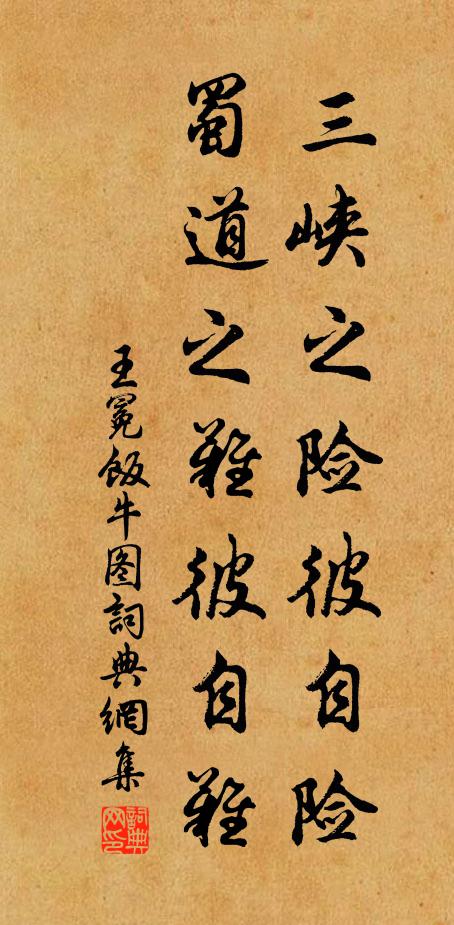 三峡之险彼自险
蜀道之难彼自难
王冕飯牛图詞典網集
詞典网印